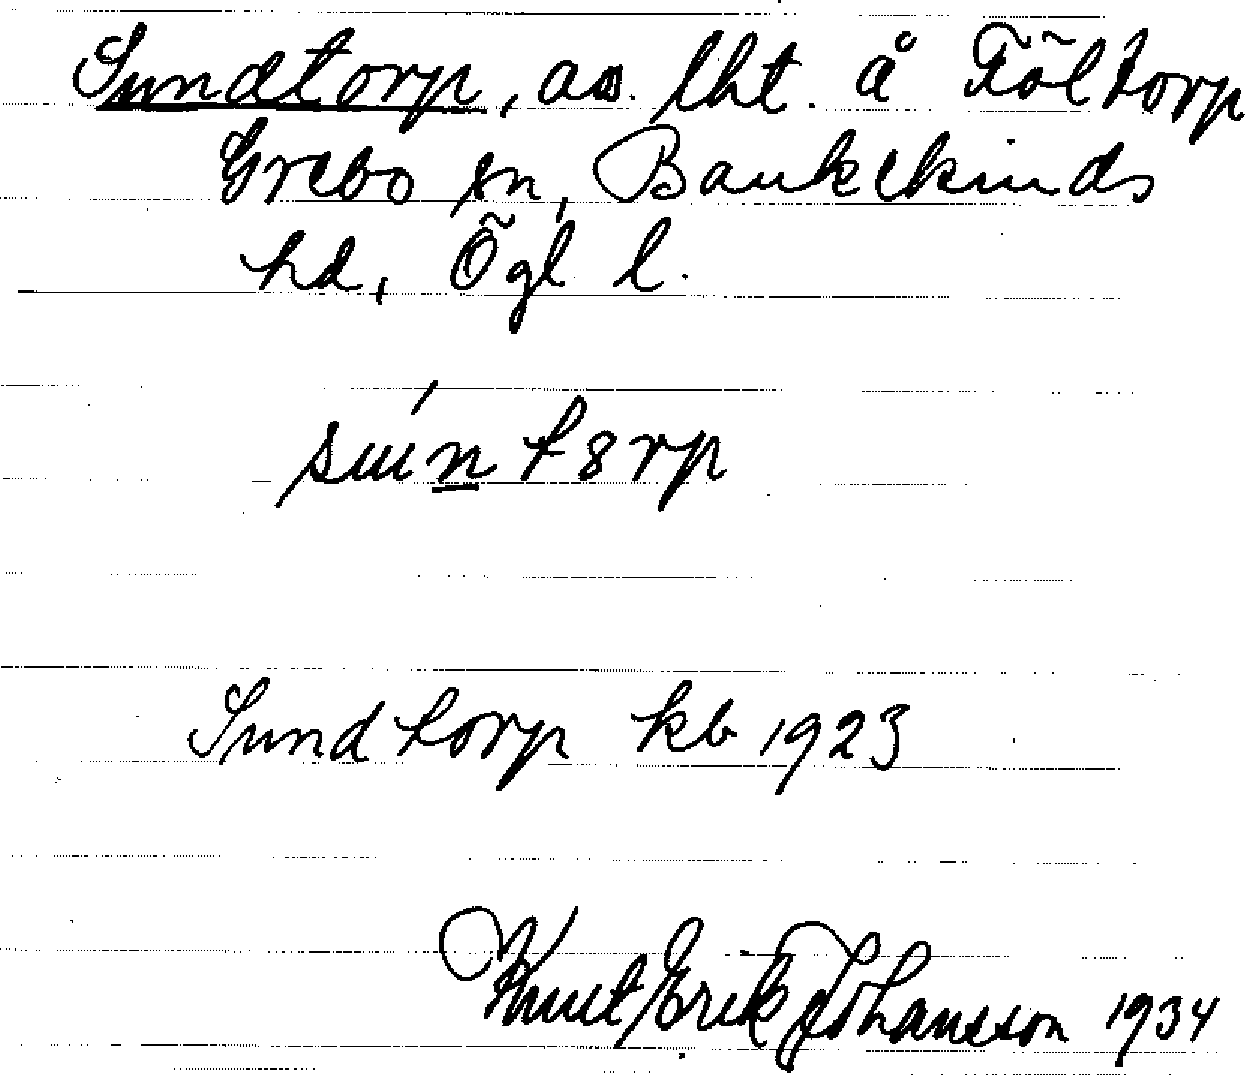 Sundtorp, as. lht. å Föltorp
Grebo sn, Bankekinds
hd, Ögl l.
Sundtorp kb 1923
Knut Erik Johansson 1934